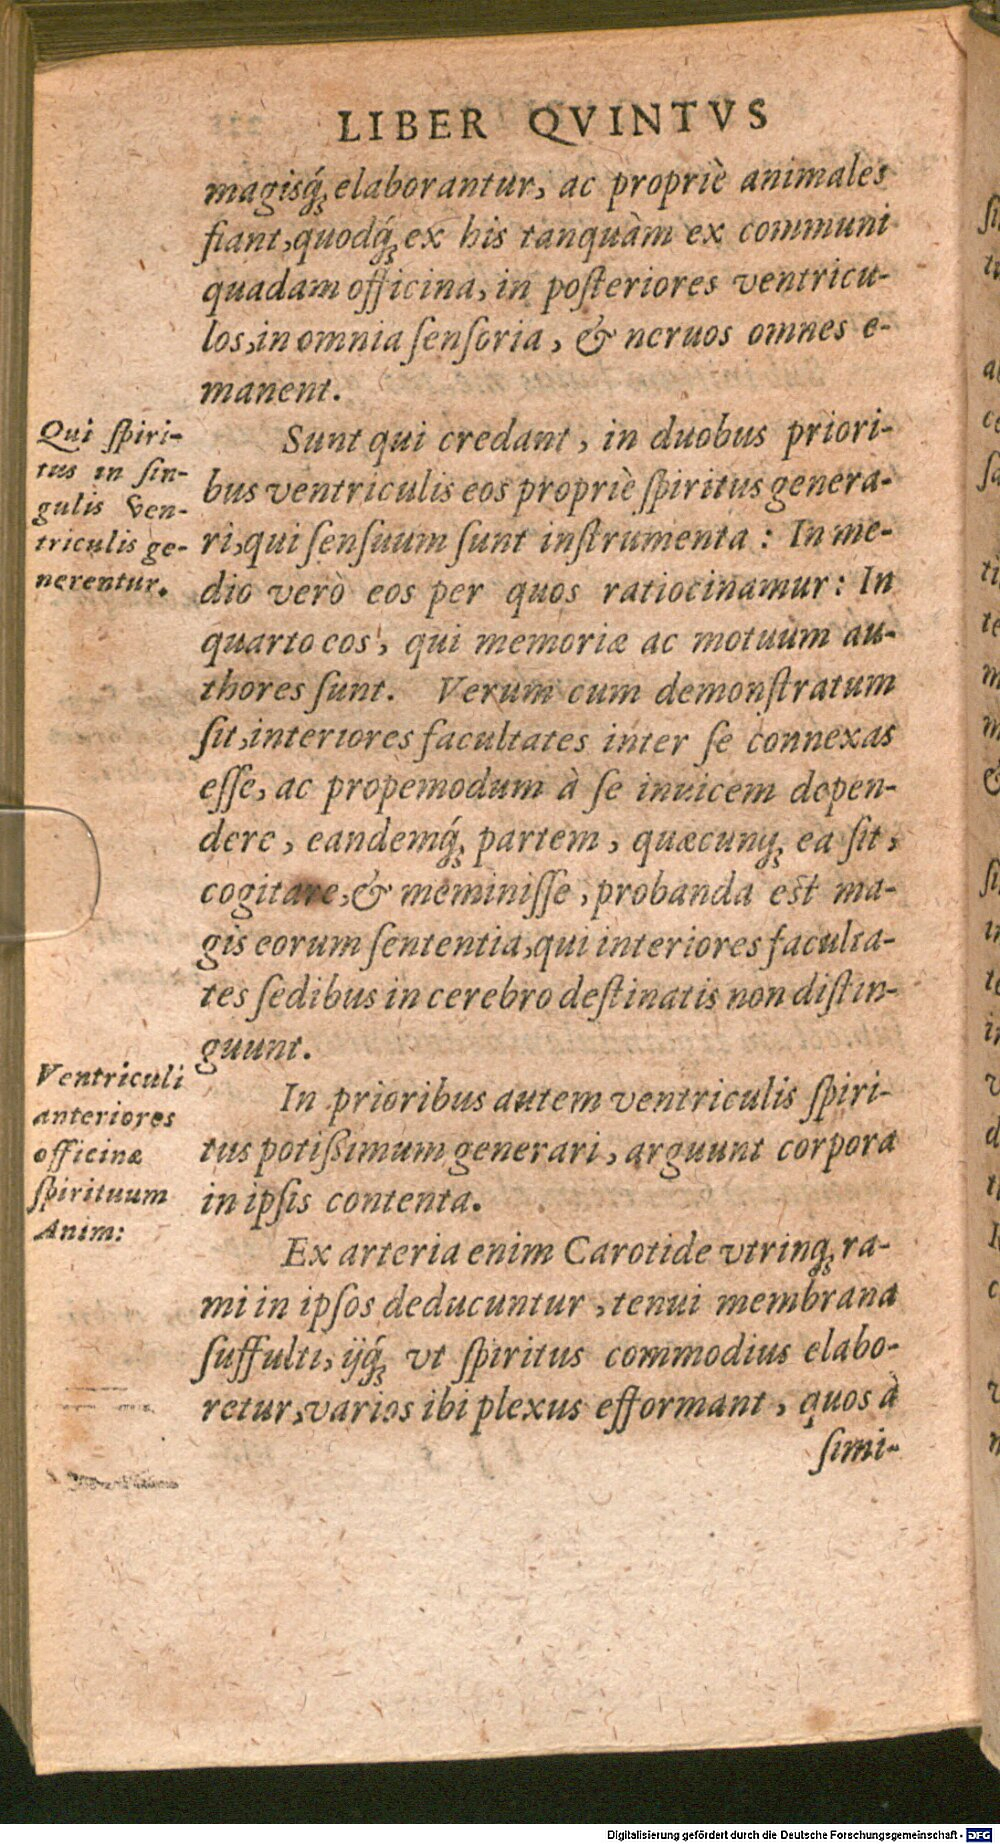 LIBER QVINTVS
magisq́; elaborantur, ac propriè animales
fiant, quodq́; ex his tanquàm ex communi
quadam officina, in poſteriores ventricu-
los, in omnia ſenſoria, & neruos omnes e-
manent.
Qui ſpiri-
tus in ſin-
gulis Ven-
triculis ge-
nerentur.
Sunt qui credant, in duobus priori-
bus ventriculis eos propriè ſpiritus genera-
ri, qui ſenſuum ſunt inſtrumenta: In me-
dio verò eos per quos ratiocinamur: In
quarto eos, qui memoriæ ac motuum au-
thores ſunt. Verum cum demonſtratum
ſit, interiores facultates inter ſe connexas
eſſe, ac propemodum à ſe inuicem depen-
dere, eandemq́; partem, quæcunq; ea ſit,
cogitare, & meminiſſe, probanda eſt ma-
gis eorum ſententia, qui interiores faculta-
tes ſedibus in cerebro deſtinatis non diſtin-
guunt.
Ventriculi
anteriores
officinæ
ſpirituum
Anim:
In prioribus autem ventriculis ſpiri-
tus potißimum generari, arguunt corpora
in ipſis contenta.
Ex arteria enim Carotide vtrinq; ra-
mi in ipſos deducuntur, tenui membrana
ſuffulti, ijq́; vt ſpiritus commodius elabo-
retur, varios ibi plexus efformant, quos à
ſimi-
Digitalisierung gefördert durch die Deutsche Forschungsgemeinschaft - DFG